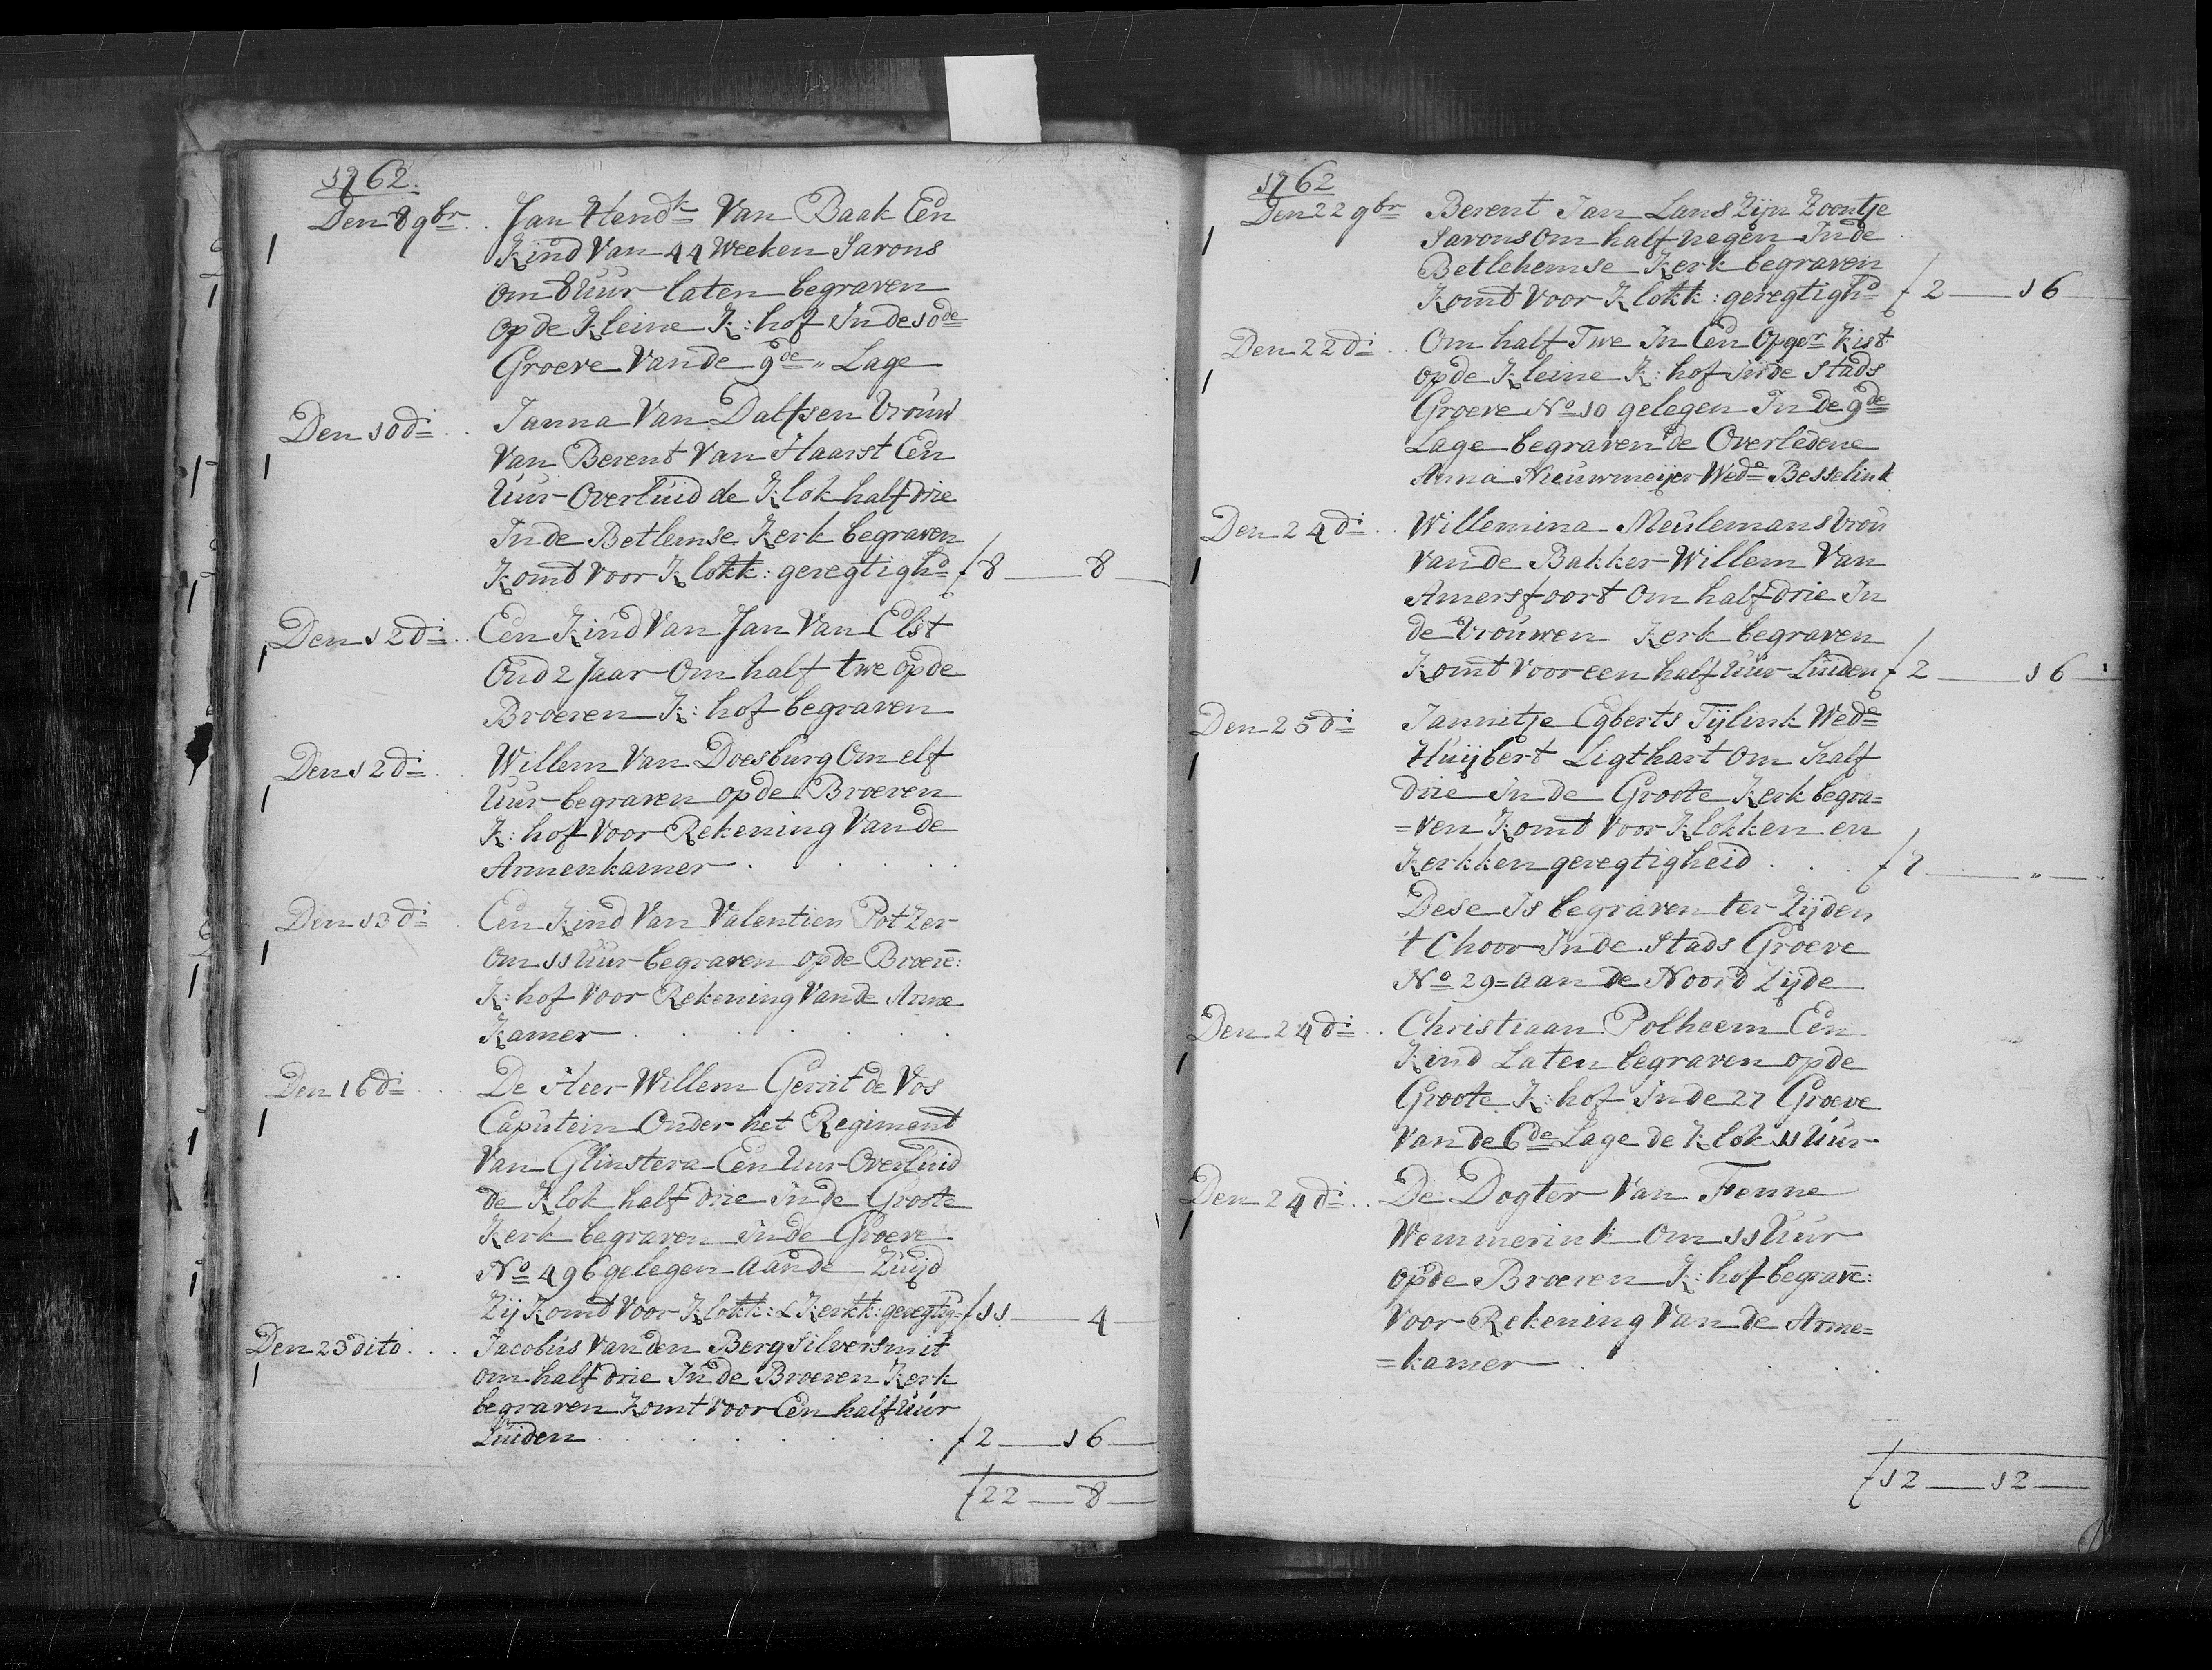 1762.
Den 8 9br. . Jan Hendk Van Baak Een
Kind Van 44 Weeken Savons
om 8 Uur laten begraven
op de Kleine K: hof In de 10de
Groeve Van de 9de " Lage
Den 10 di . . Janna Van Dalfsen Vrouw
Van Berent Van Haarst Een
Uur Overluid de Klok half drie
In de Betlemse Kerk begraven
Komt voor Klokk: geregtighd f 8 — 8
Den 12 di . . Een Kind Van Jan Van Elst
Oud 2 Jaar Om half twe op de
Broeren K: hof begraven
Den 12 di . . Willem Van Doesburg Om elf
Uur begraven op de Broeren
K: hof Voor Rekening Van de
Armenkamer . . . .
Den 13 di . Een Kind Van Valentien Potzer
Om 11 Uur begraven op de Broere:
K: hof Voor Rekening Van de Arme
Kamer . . . . .
Den 16 di . . De Heer Willem Gerrit de Vos
Captitein Onder het Regiment
Van Glinstera Een Uur Overluid
de Klok half drie in de Groote
Kerk begraven in de Groeve
No 496 gelegen aan de Zuijd
Zij Komt Voor Klokk: & Kerkk: geregtig= f 11 — 4
Den 23 dito . . . Jacobus Van den Berg Silversmit
om half drie In de Broeren Kerk
begraven Komt Voor Een half Uur
Luiden . . . . . . . f 2 — 16
f 22 — 8
1762
Den 22 9br Berent Jan Lans Zijn Zoontje
Savons Om half negen In de
Betlehemse Kerk begraven
Komt Voor Klokk: geregtighd f 2 — 16
Den 22 di . . Om half Twe In Een Opger Kist
op de Kleine K: hof in de Stads
Groeve No 10 gelegen In De 9de
Lage begraven de Overledene
Anna Nieuwmeijer Wede Besselink
Den 24 di . . Willemina Meulemans Vrou
Van de Bakker Willem Van
Amersfoort Om half drie In
de Vrouwen Kerk begraven
Komt Voor een half Uur Luiden f 2 — 16
Den 25 di Jannitje Egberts Tijlink Wede
Huijbert Ligthart Om half
drie in de Groote Kerk begra=
=ven Komt Voor Klokken en
Kerkken geregtigheid . . . f 7 — " — "
Dese Is begraven ter Zijden
't Choor In de Stads Groeve
No 29= aan de Noord Zijde
Den 24 di . . Christiaan Polheem Een
Kind Laten begraven op de
Groote K: hof In de 27 Groeve
Van de 6de Lage de Klok 11 Uur
Den 24 di . . De Dogter Van Fenne
Wemmerink Om 11 Uur
op de Broeren K: hof begrave:
Voor Rekening Van de Arme=
=kamer . . . .
f 12 — 12